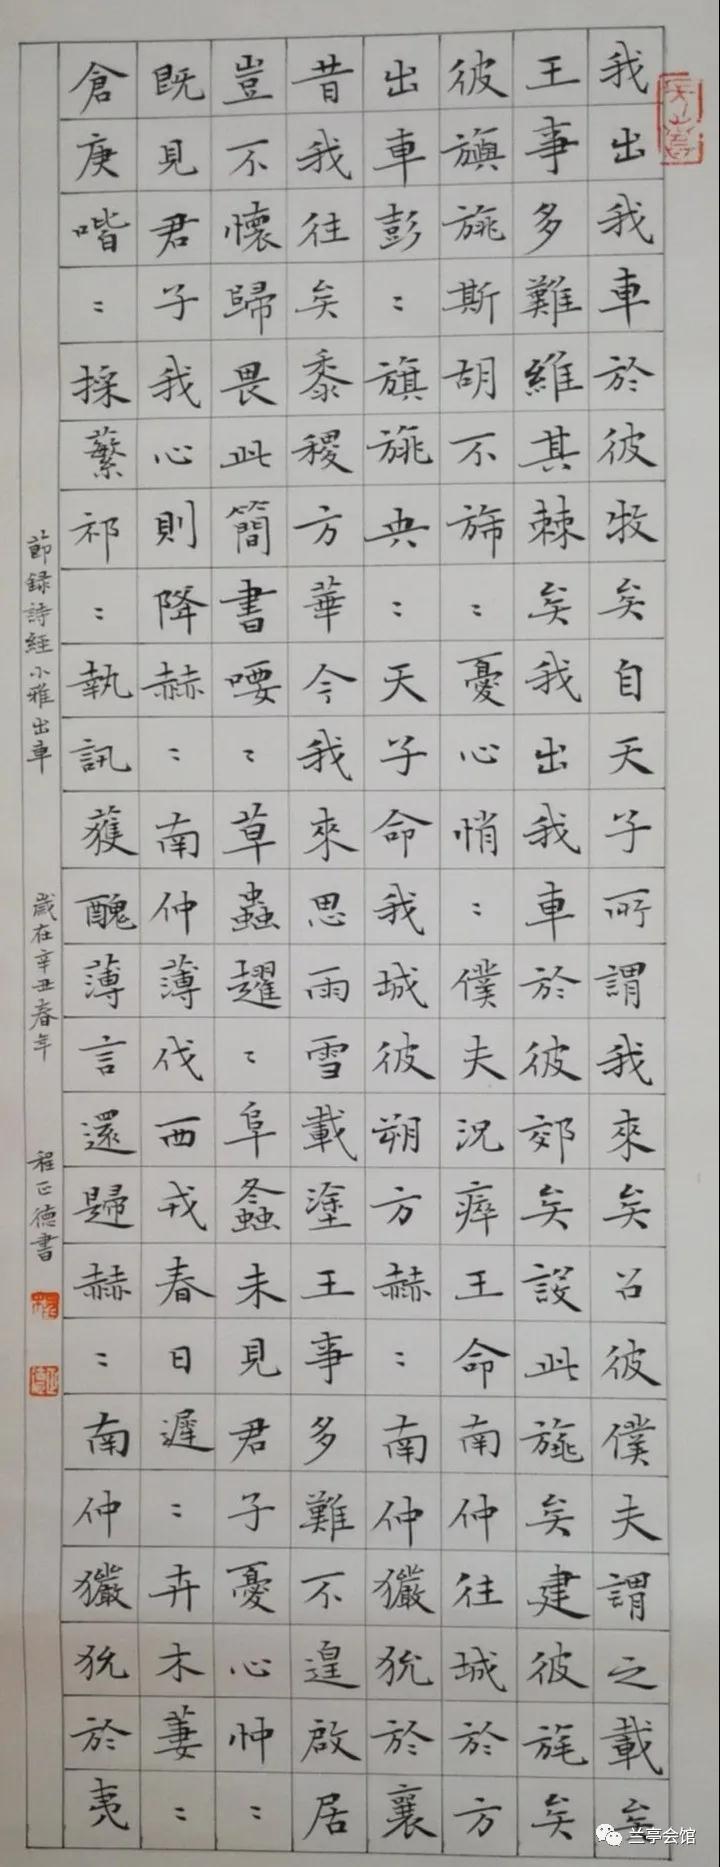 我出我車於彼牧矣自天子所謂我來矣召彼僕夫謂之載矣
王事多難維其棘矣我出我車於彼郊矣設此旐矣建彼旄矣
彼旟旐斯胡不旆：憂心悄：僕夫況瘁王命南仲往城於方
出車彭：旗旐央：天子命我城彼朔方赫：南仲玁狁於襄
昔我往矣黍稷方華今我來思雨雪載塗王事多難不遑啟居
豈不懷歸畏此簡書喓：草蟲趯：阜螽未見君子憂心忡：
既見君子我心則降赫：南仲薄伐西戎春日遲：卉木萋：
倉庚喈：採蘩祁：執訊獲醜薄言還歸赫：南仲玁狁於夷
節録詩經小雅出車 歲在辛丑春年 程正德書
兰亭会馆